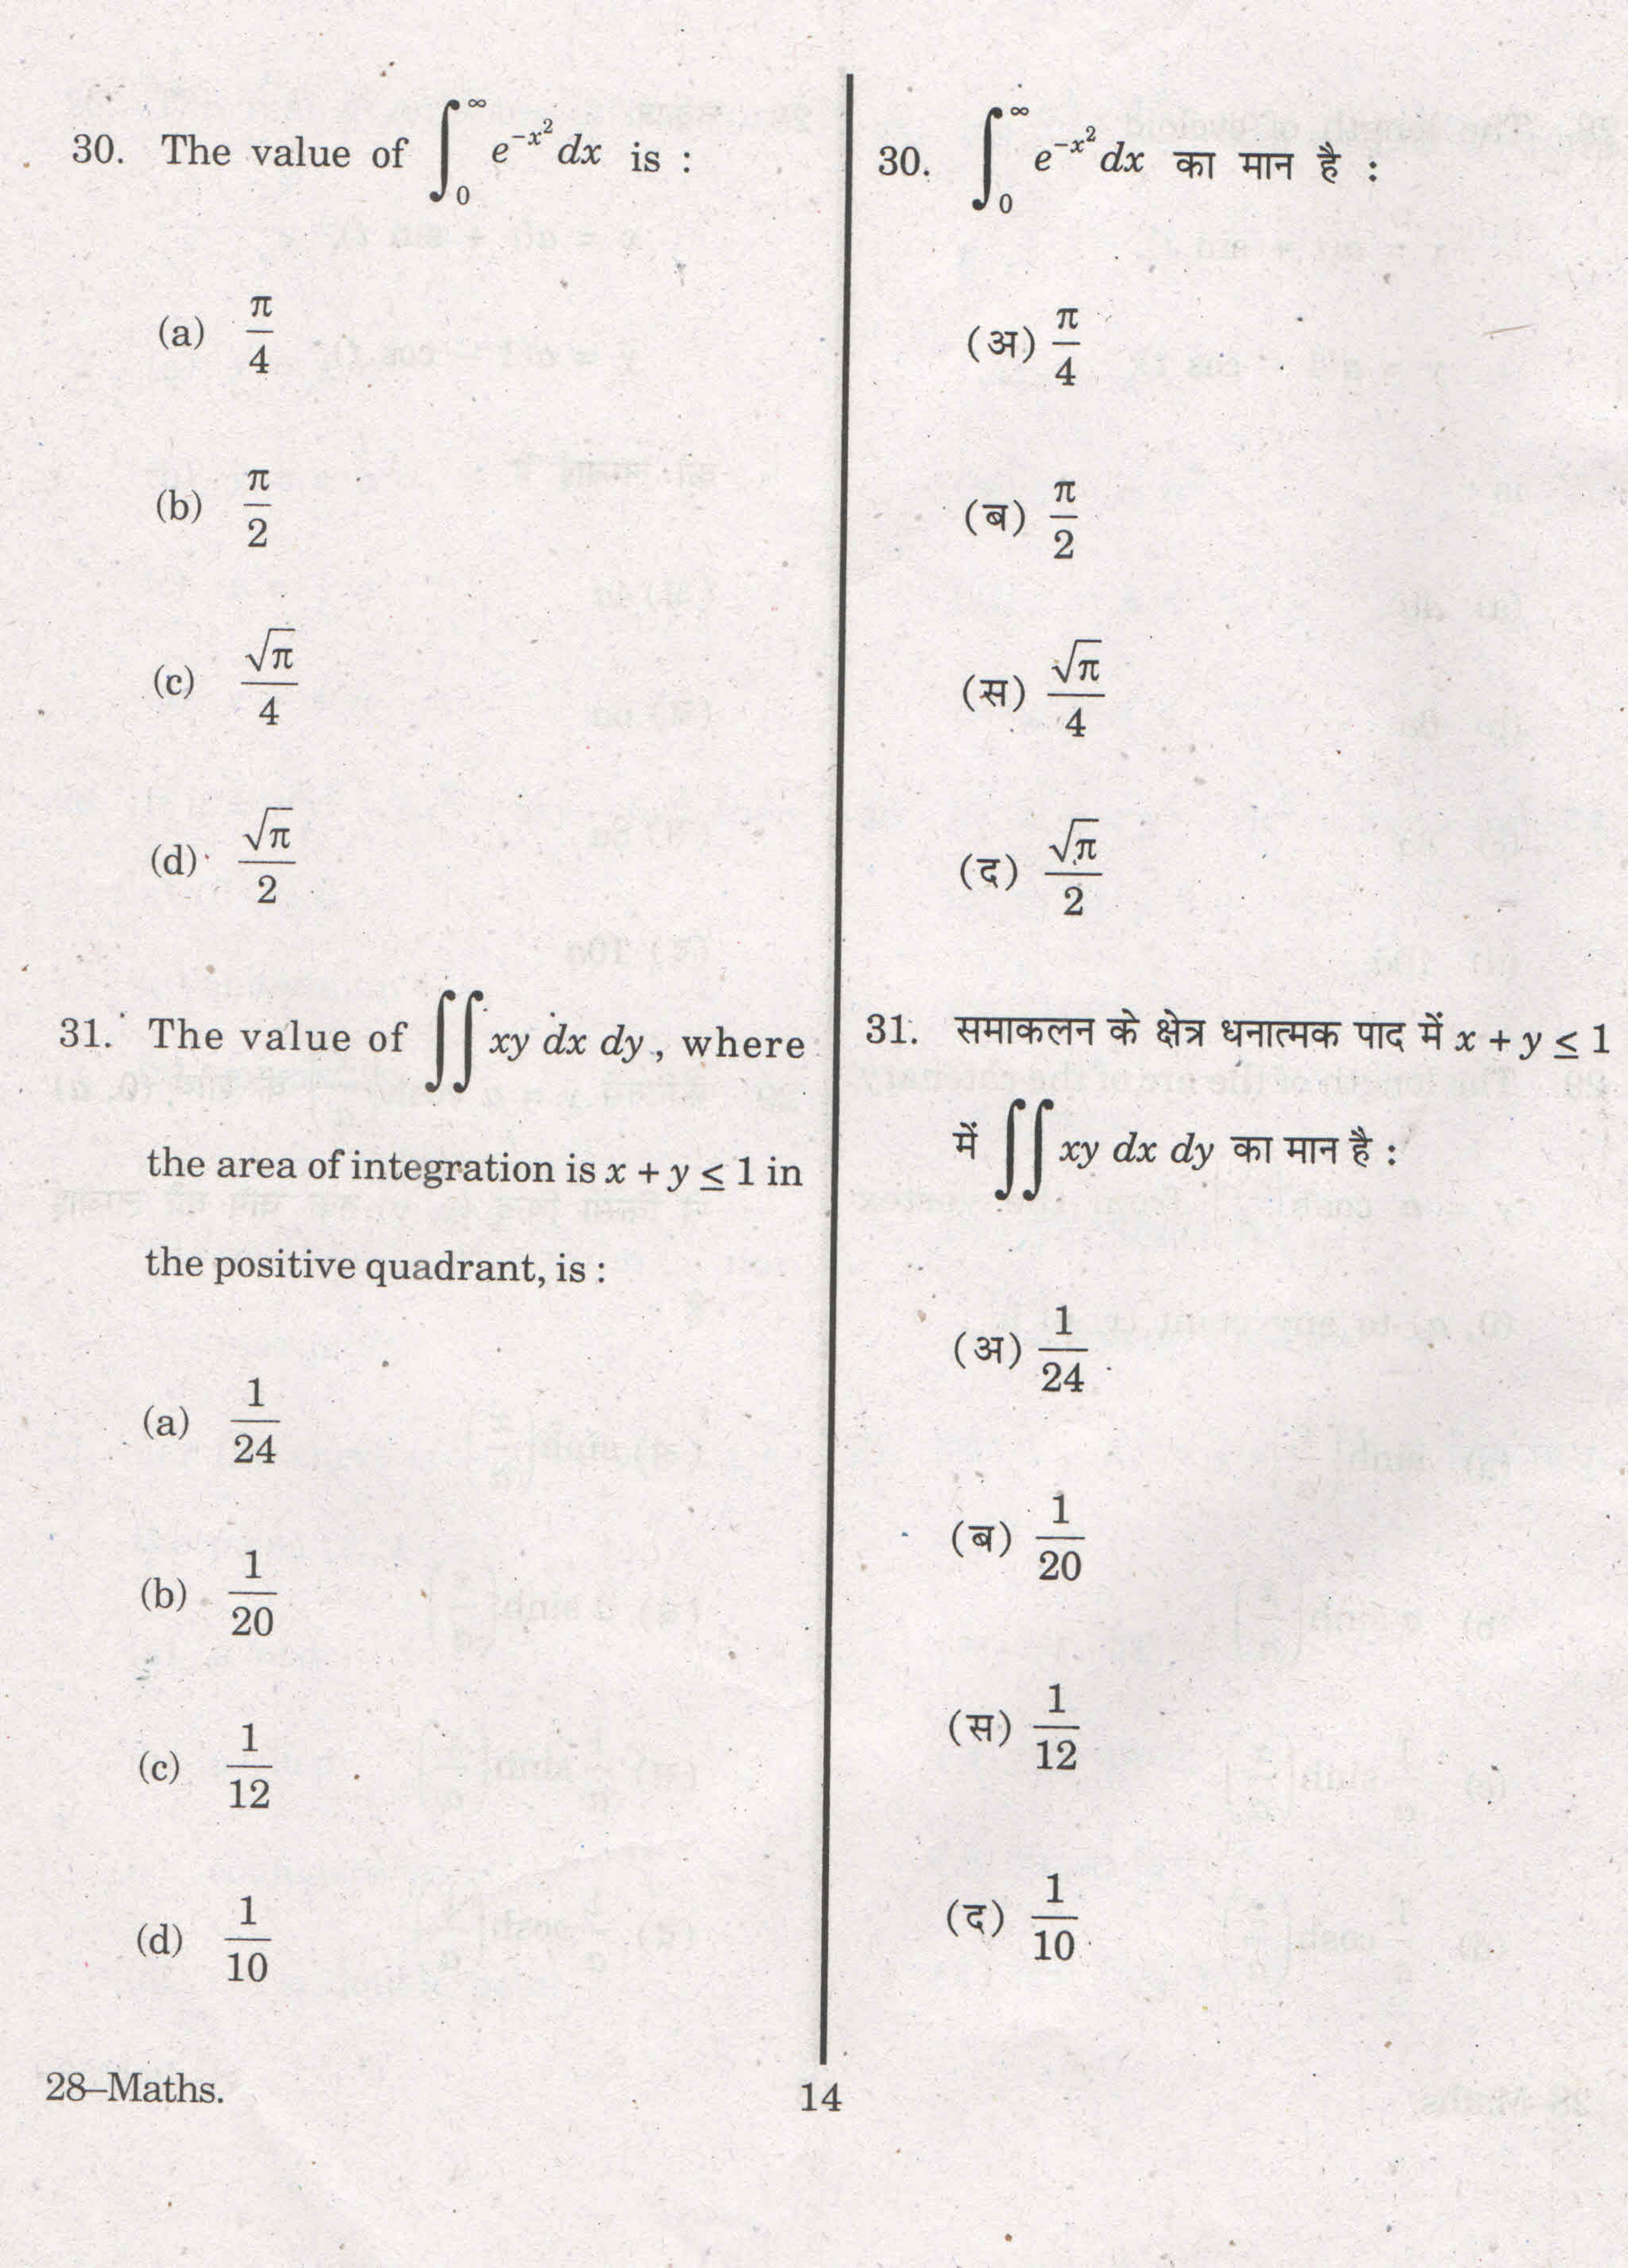 30. The value of ∫₀^∞ e^{-x²} dx is :
(a) π/4
(b) π/2
(c) √π/4
(d) √π/2
31. The value of ∫∫ xy dx dy, where
the area of integration is x + y ≤ 1 in
the positive quadrant, is :
(a) 1/24
(b) 1/20
(c) 1/12
(d) 1/10
30. ∫₀^∞ e^{-x²} dx का मान है :
(अ) π/4
(ब) π/2
(स) √π/4
(द) √π/2
31. समाकलन के क्षेत्र धनात्मक पाद में x + y ≤ 1
में ∫∫ xy dx dy का मान है :
(अ) 1/24
(ब) 1/20
(स) 1/12
(द) 1/10
28–Maths.
14